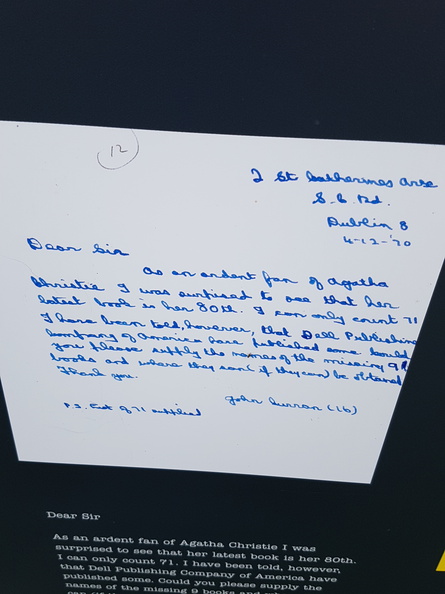 12
2 St Catherines Ave
S.C. Rd.
Dublin 8
4-12-'70
Dear Sir
As an ardent fan of Agatha
Christie I was surprised to see that her
latest book is her 80th. I can only count 71
I have been told, however, that Dell Publishing
Company of America have published some. Could
you please supply the names of the missing 9
books and where they can (if they can) be obtained
Thank you.
John Curran (16)
P.S. List of 71 supplied
Dear Sir
As an ardent fan of Agatha Christie I was
surprised to see that her latest book is her 80th.
I can only count 71. I have been told, however,
that Dell Publishing Company of America have
published some. Could you please supply the
names of the missing 9 books and